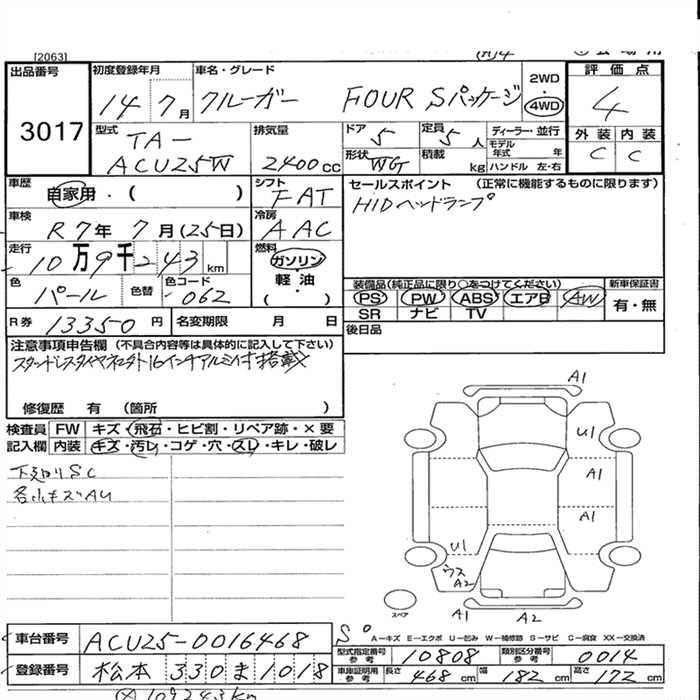 [2063]
出品番号 3017
初度登録年月 14年 7月
車名・グレード クルーガー FOUR Sパッケージ
2WD・4WD
評価点 4
型式 TA-ACU25W
排気量 2400cc
ドア 5
定員 5人
形状 WG
積載 kg
ディーラー・並行
モデル年式 年
ハンドル 左・右
外装 C
内装 C
車歴 自家用・( )
シフト FAT
車検 R7年 7月(25日)
冷房 AAC
走行 10万9千243km
燃料 ガソリン・軽油 ( )
色 パール
色替
色コード 062
R券 13350円
名変期限 月 日
セールスポイント (正常に機能するものに限ります)
HIDヘッドランプ
装備品(純正品に限り○をつけてください)
PS PW ABS エアB AW
SR ナビ TV
新車保証書 有・無
後日品
注意事項申告欄 (不具合内容等は具体的に記入して下さい)
修復歴 有 (箇所 )
検査員記入欄
FW キズ・飛石・ヒビ割・リペア跡・×要
内装 キズ・汚レ・コゲ・穴・スレ・キレ・破レ
下廻りSC
各小キズAU
A1
U1
A1
A1
U1
ウス
A2
スペア
A1 A2
S°
A―キズ E―エクボ U―凹み W―補修跡 S―サビ C―腐食 XX―交換済
車台番号 ACU25-0016468
登録番号 松本 330 ま 1018
型式指定番号 参考 10808
類別区分番号 参考 0014
車庫証明用 参考 長さ 468cm 幅 182cm 高さ 172cm
109243km